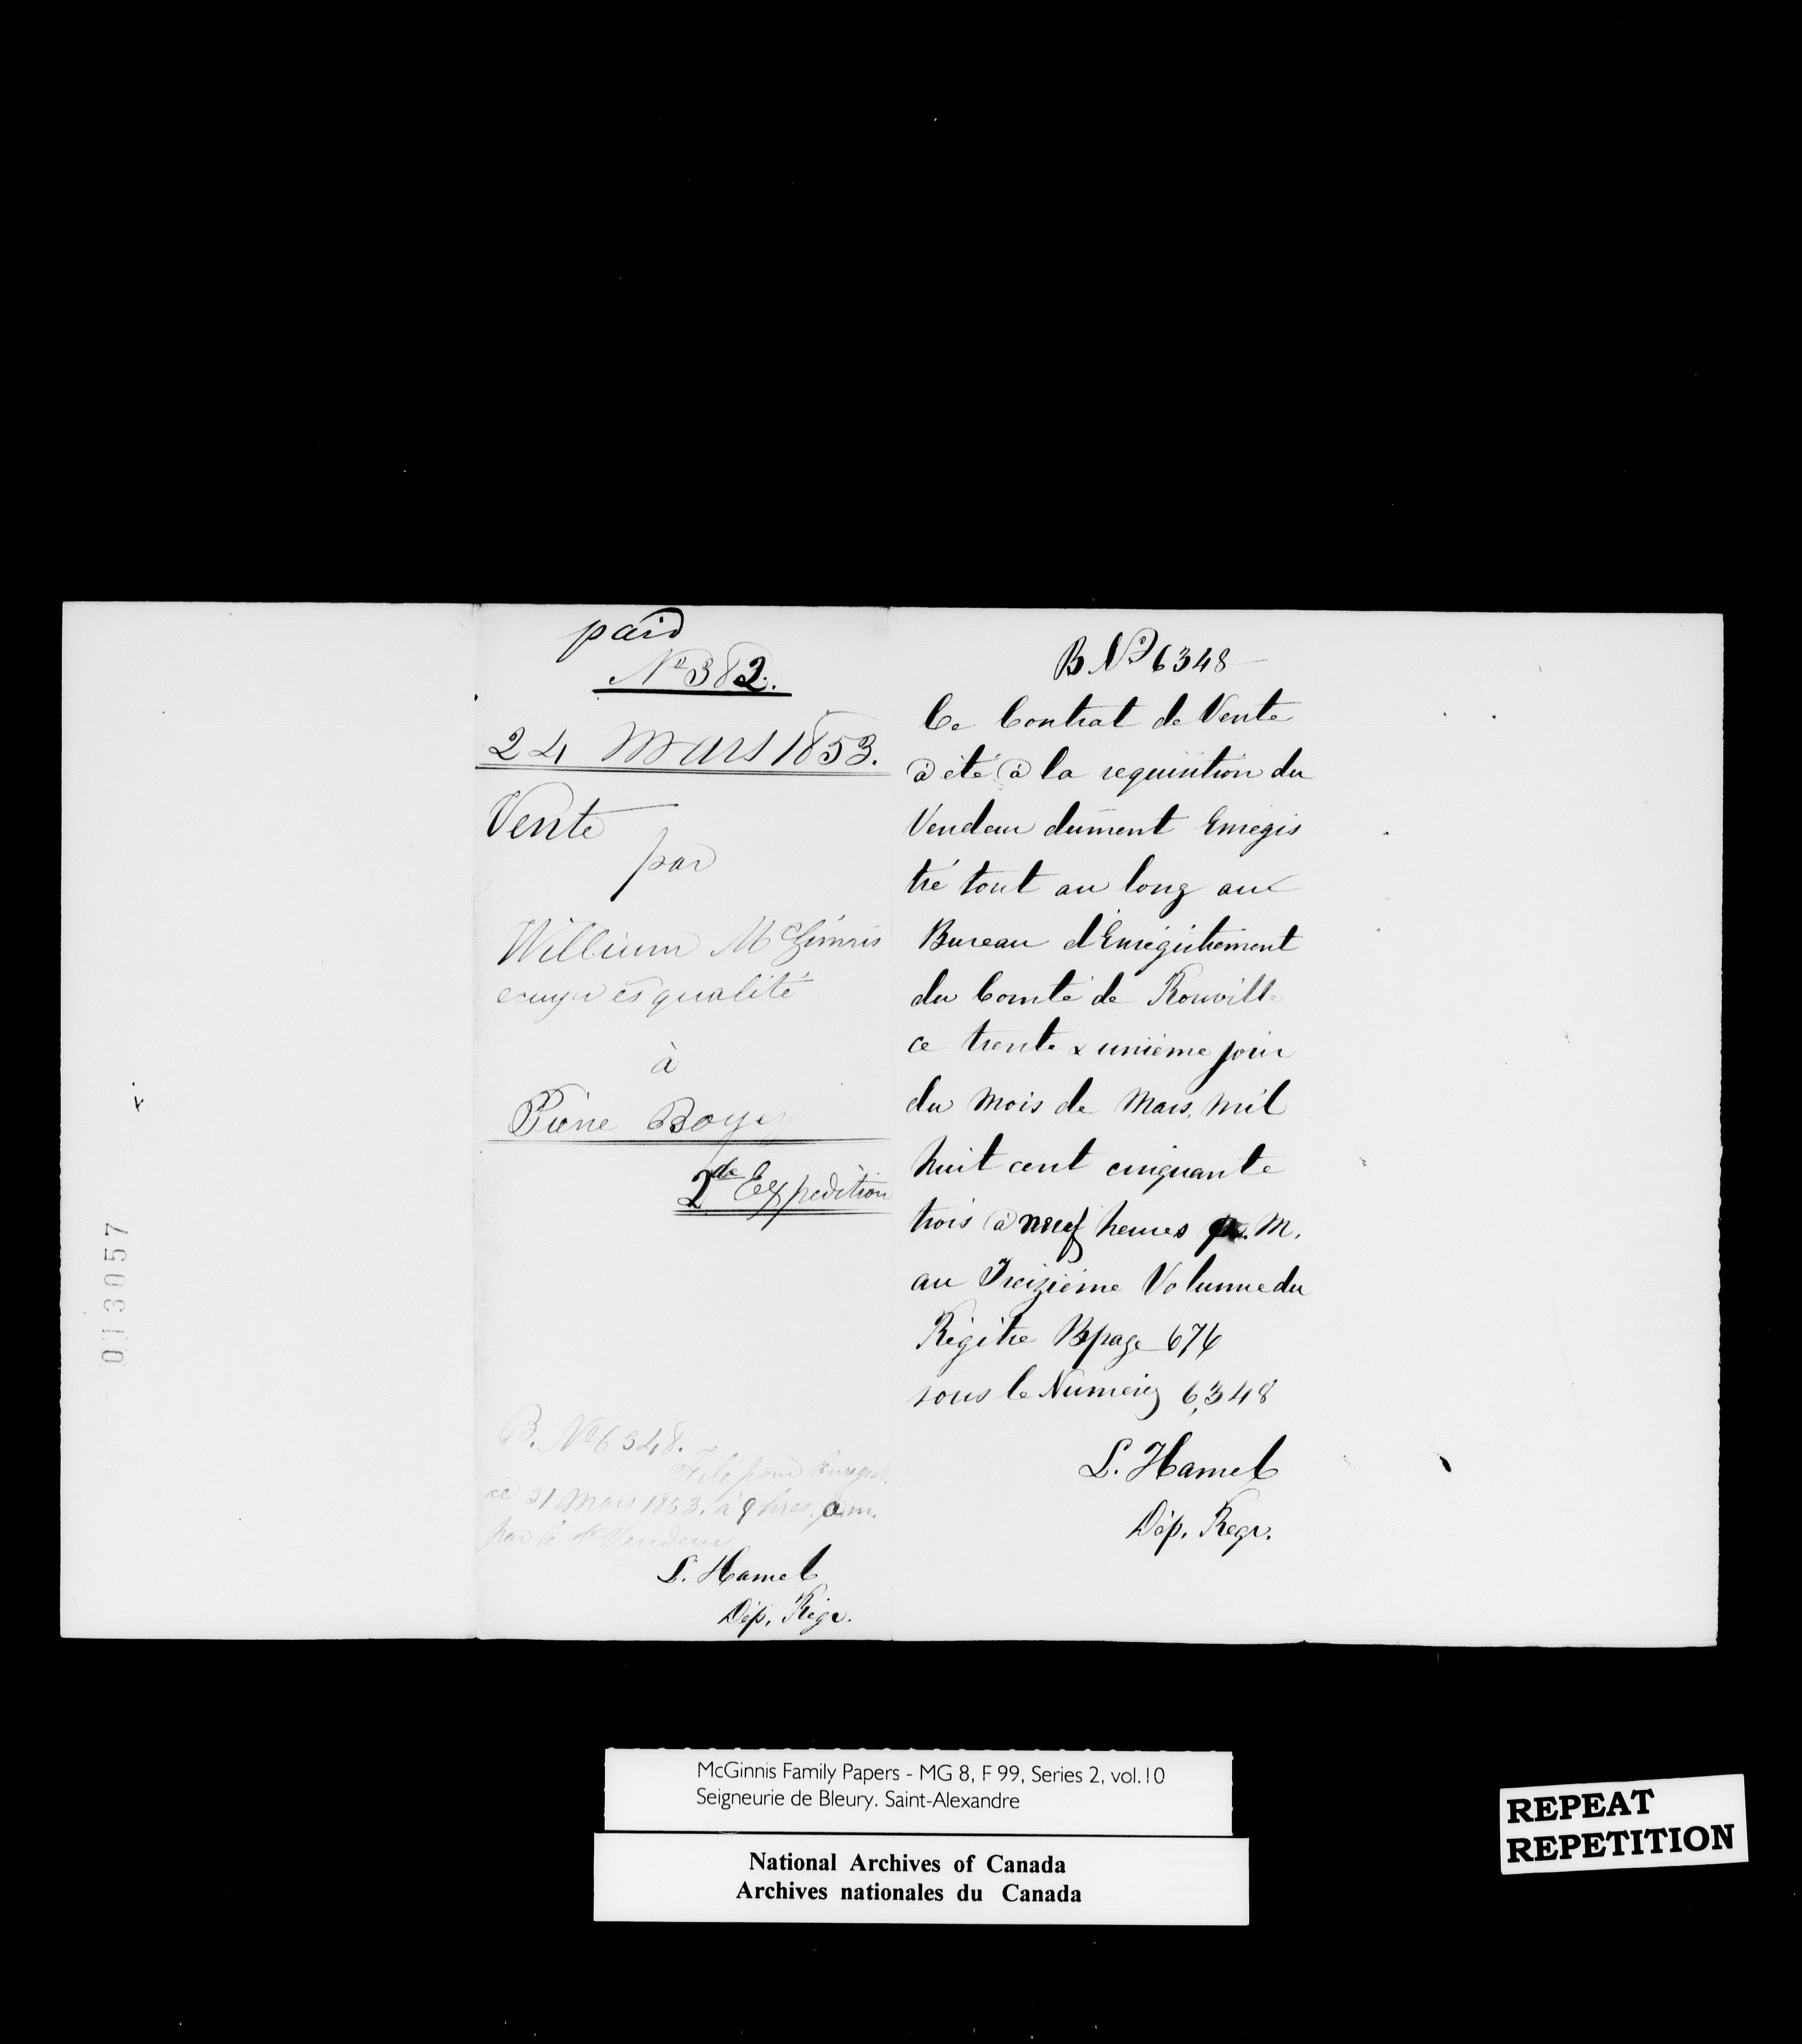 013057
paid
No 382.
24 Mars 1853.
Vente
par
William McGinnis
ecuyer ès qualité
à
Pierre Boyer
2de Expedition
B. No 6348.
Filé pour Enregist.
ce 31 Mars 1853. à 9 hres. a.m.
par le Vendeur
L. Hamel
Dép. Régr.
B No 6348
Ce Contrat de Vente
à été à la requisition du
Vendeur dument Enregis
tré tout au long au
Bureau d'Enregistrement
du Comté de Rouville
ce trente & unième jour
du mois de Mars, mil
huit cent cinquante
trois à neuf heures a. M.
au Treizième Volume du
Régitre B page 676
sous le Numero 6,348
L. Hamel
Dép. Regr.
McGinnis Family Papers - MG 8, F 99, Series 2, vol.10
Seigneurie de Bleury. Saint-Alexandre
National Archives of Canada
Archives nationales du Canada
REPEAT
REPETITION